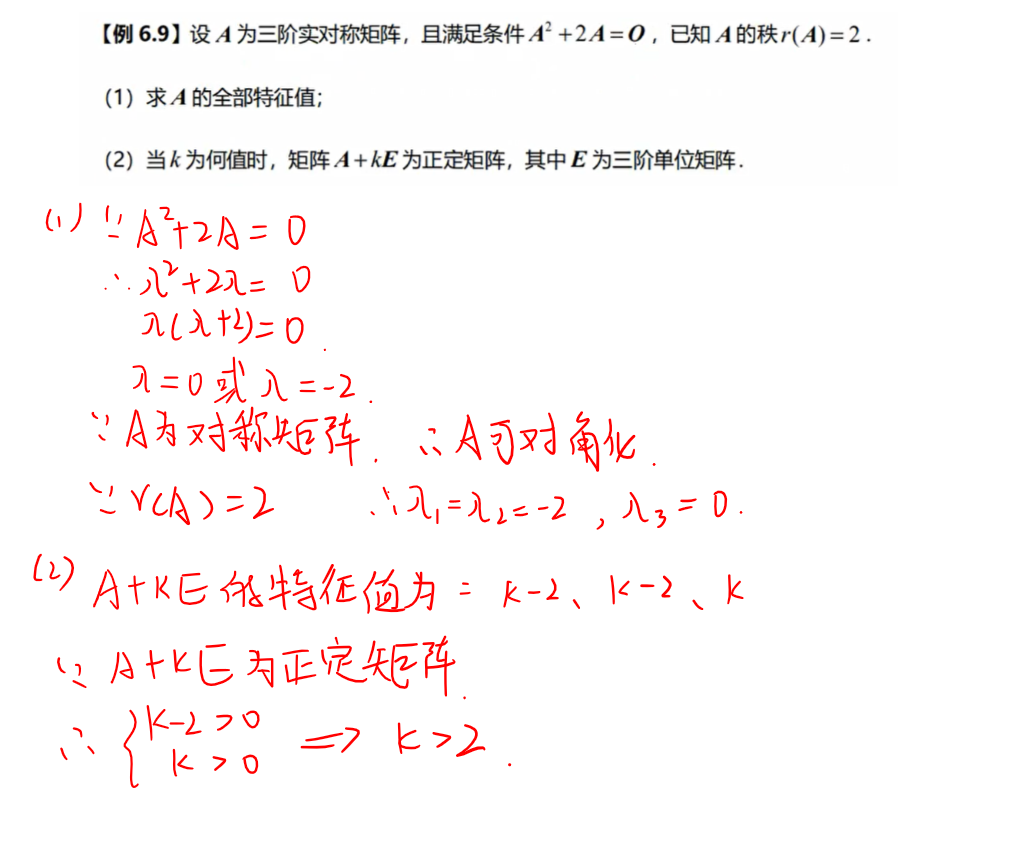 【例 6.9】设 A 为三阶实对称矩阵，且满足条件 A² + 2A = O，已知 A 的秩 r(A) = 2．
（1）求 A 的全部特征值；
（2）当 k 为何值时，矩阵 A + kE 为正定矩阵，其中 E 为三阶单位矩阵．
(1) ∵ A²+2A = 0
∴ λ²+2λ = 0
λ(λ+2)=0
λ=0 或 λ=-2.
∵ A为对称矩阵. ∴ A可对角化.
∵ r(A)=2 ∴ λ₁=λ₂=-2, λ₃=0.
(2) A+KE 的特征值为: k-2、k-2、k
∵ A+KE 为正定矩阵.
∴ { k-2>0
k>0 ⇒ k>2.